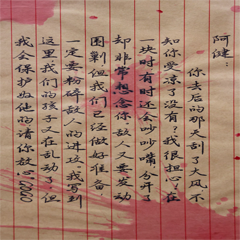 阿健：
你去后的那天刮了大风，不
知你受凉了没有？我很担心。在
一块时有时还会吵吵嘴，分开了
却非常想念你。敌人又要发动
围剿，但我们已经做好准备，
一定要粉碎敌人的进攻。我写到
这里，我们的孩子又在乱动了，但
我会保护好他的，请你放心。